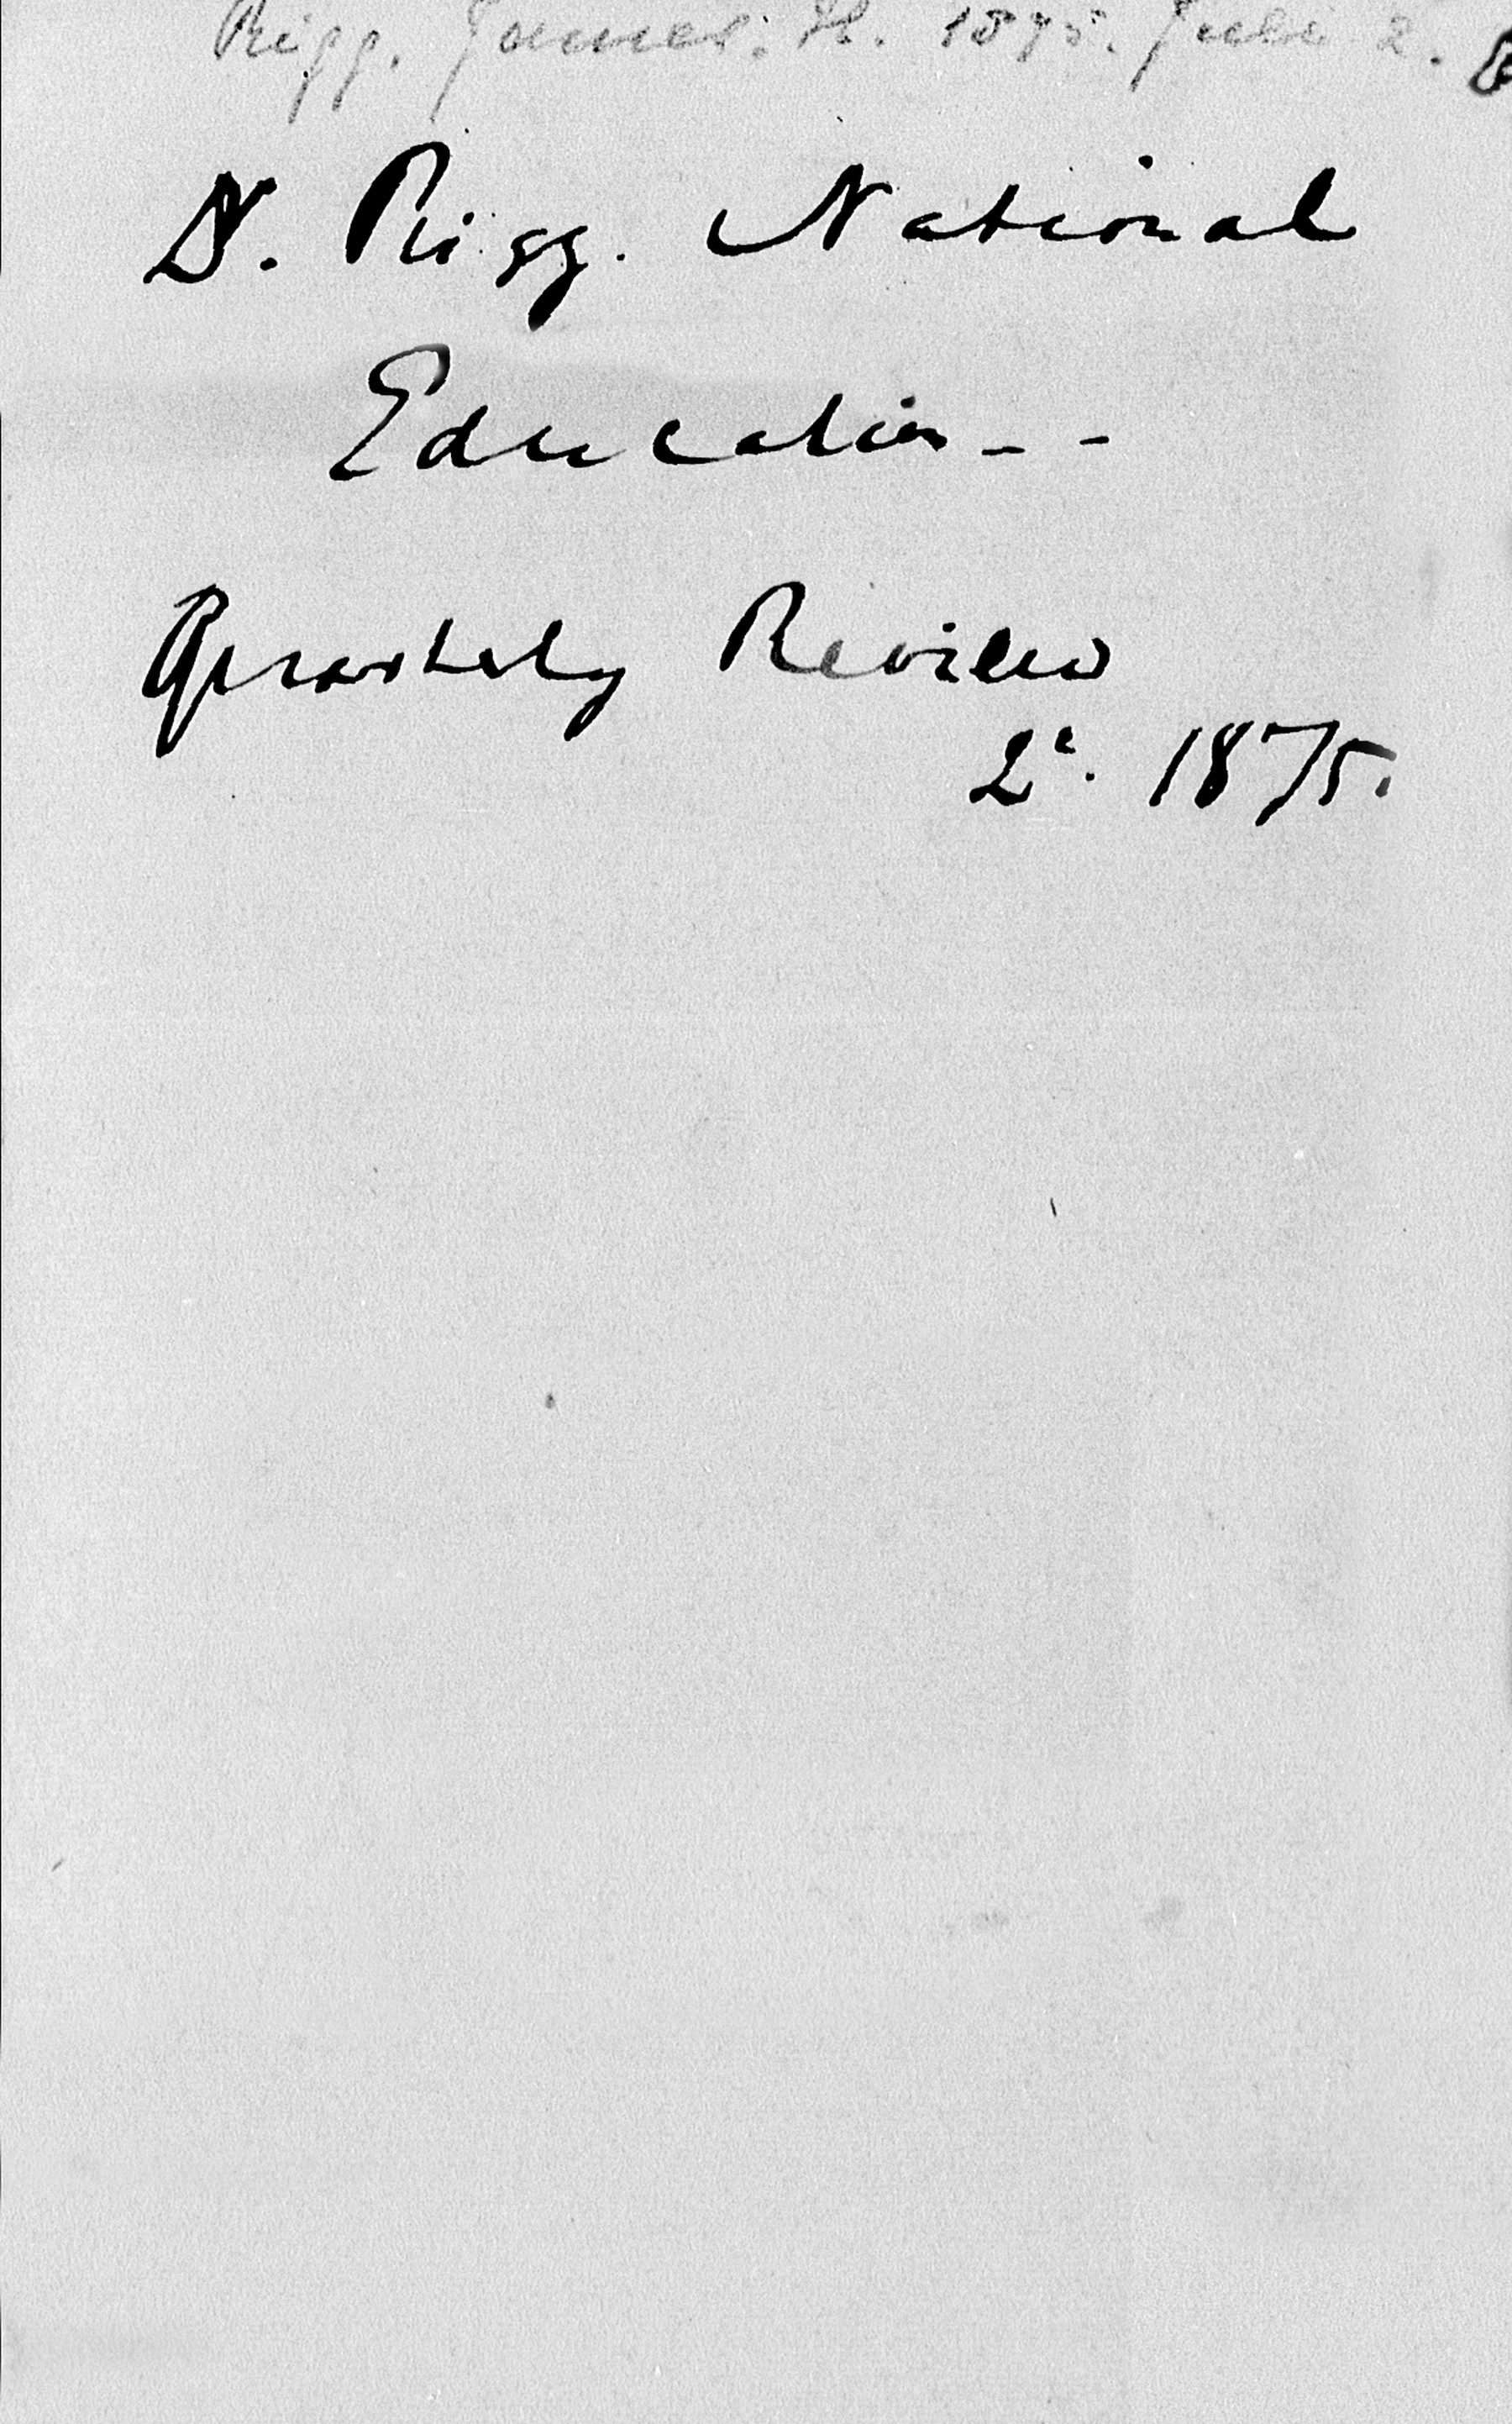 Rigg. James. H. 1875. Juli 2.
Dr. Rigg. National
Education - -
Quarterly Review
2ᵉ. 1875.